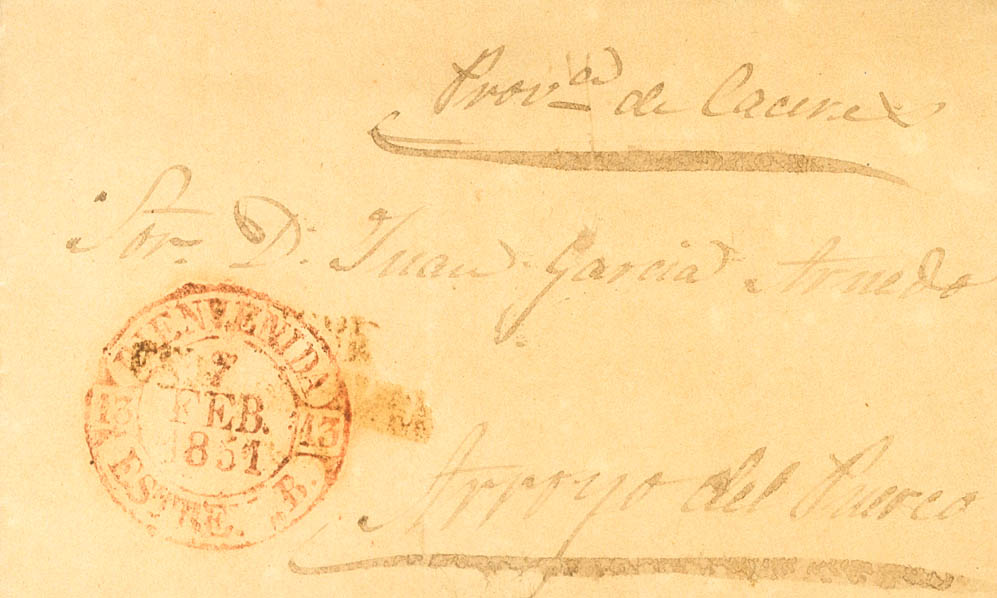 Prov.ª de Caceres
Sor. D. Juan Garcia Arnedo
BIENVENIDA
7
FEB.
1851
13
13
ESTRE. B.
Arroyo del Puerco